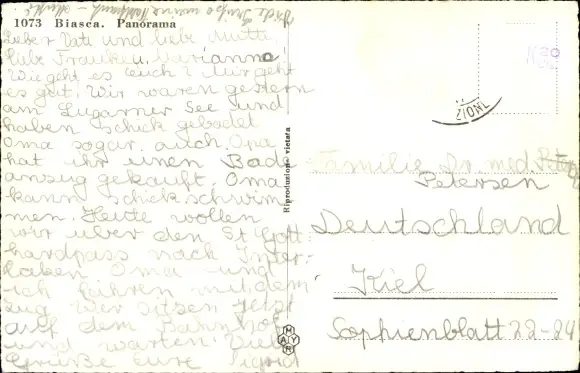 1073 Biasca. Panorama
Lieber Vati und liebe Mutti
liebe Frauken, Marianna
Wie geht es euch? Mir geht
es gut. Wir waren gestern
am Luganer See und
haben schick gebadet
Oma sogar. auch Opa
hat ihr einen Bade
anzug gekauft. Oma
kann schick schwim
men. Heute wollen
wir über den St Gott
hardpass nach Inter
laken Oma und
ich fahren mit dem
Zug Wir sitzen jetzt
auf dem Bahnhof
und warten. Viele
Grüße Eure Sigrid
Riproduzione vietata
MAYR
ZIONI
Familie Dr. med.
Petersen
Deutschland
Kiel
Sophienblatt 22-24